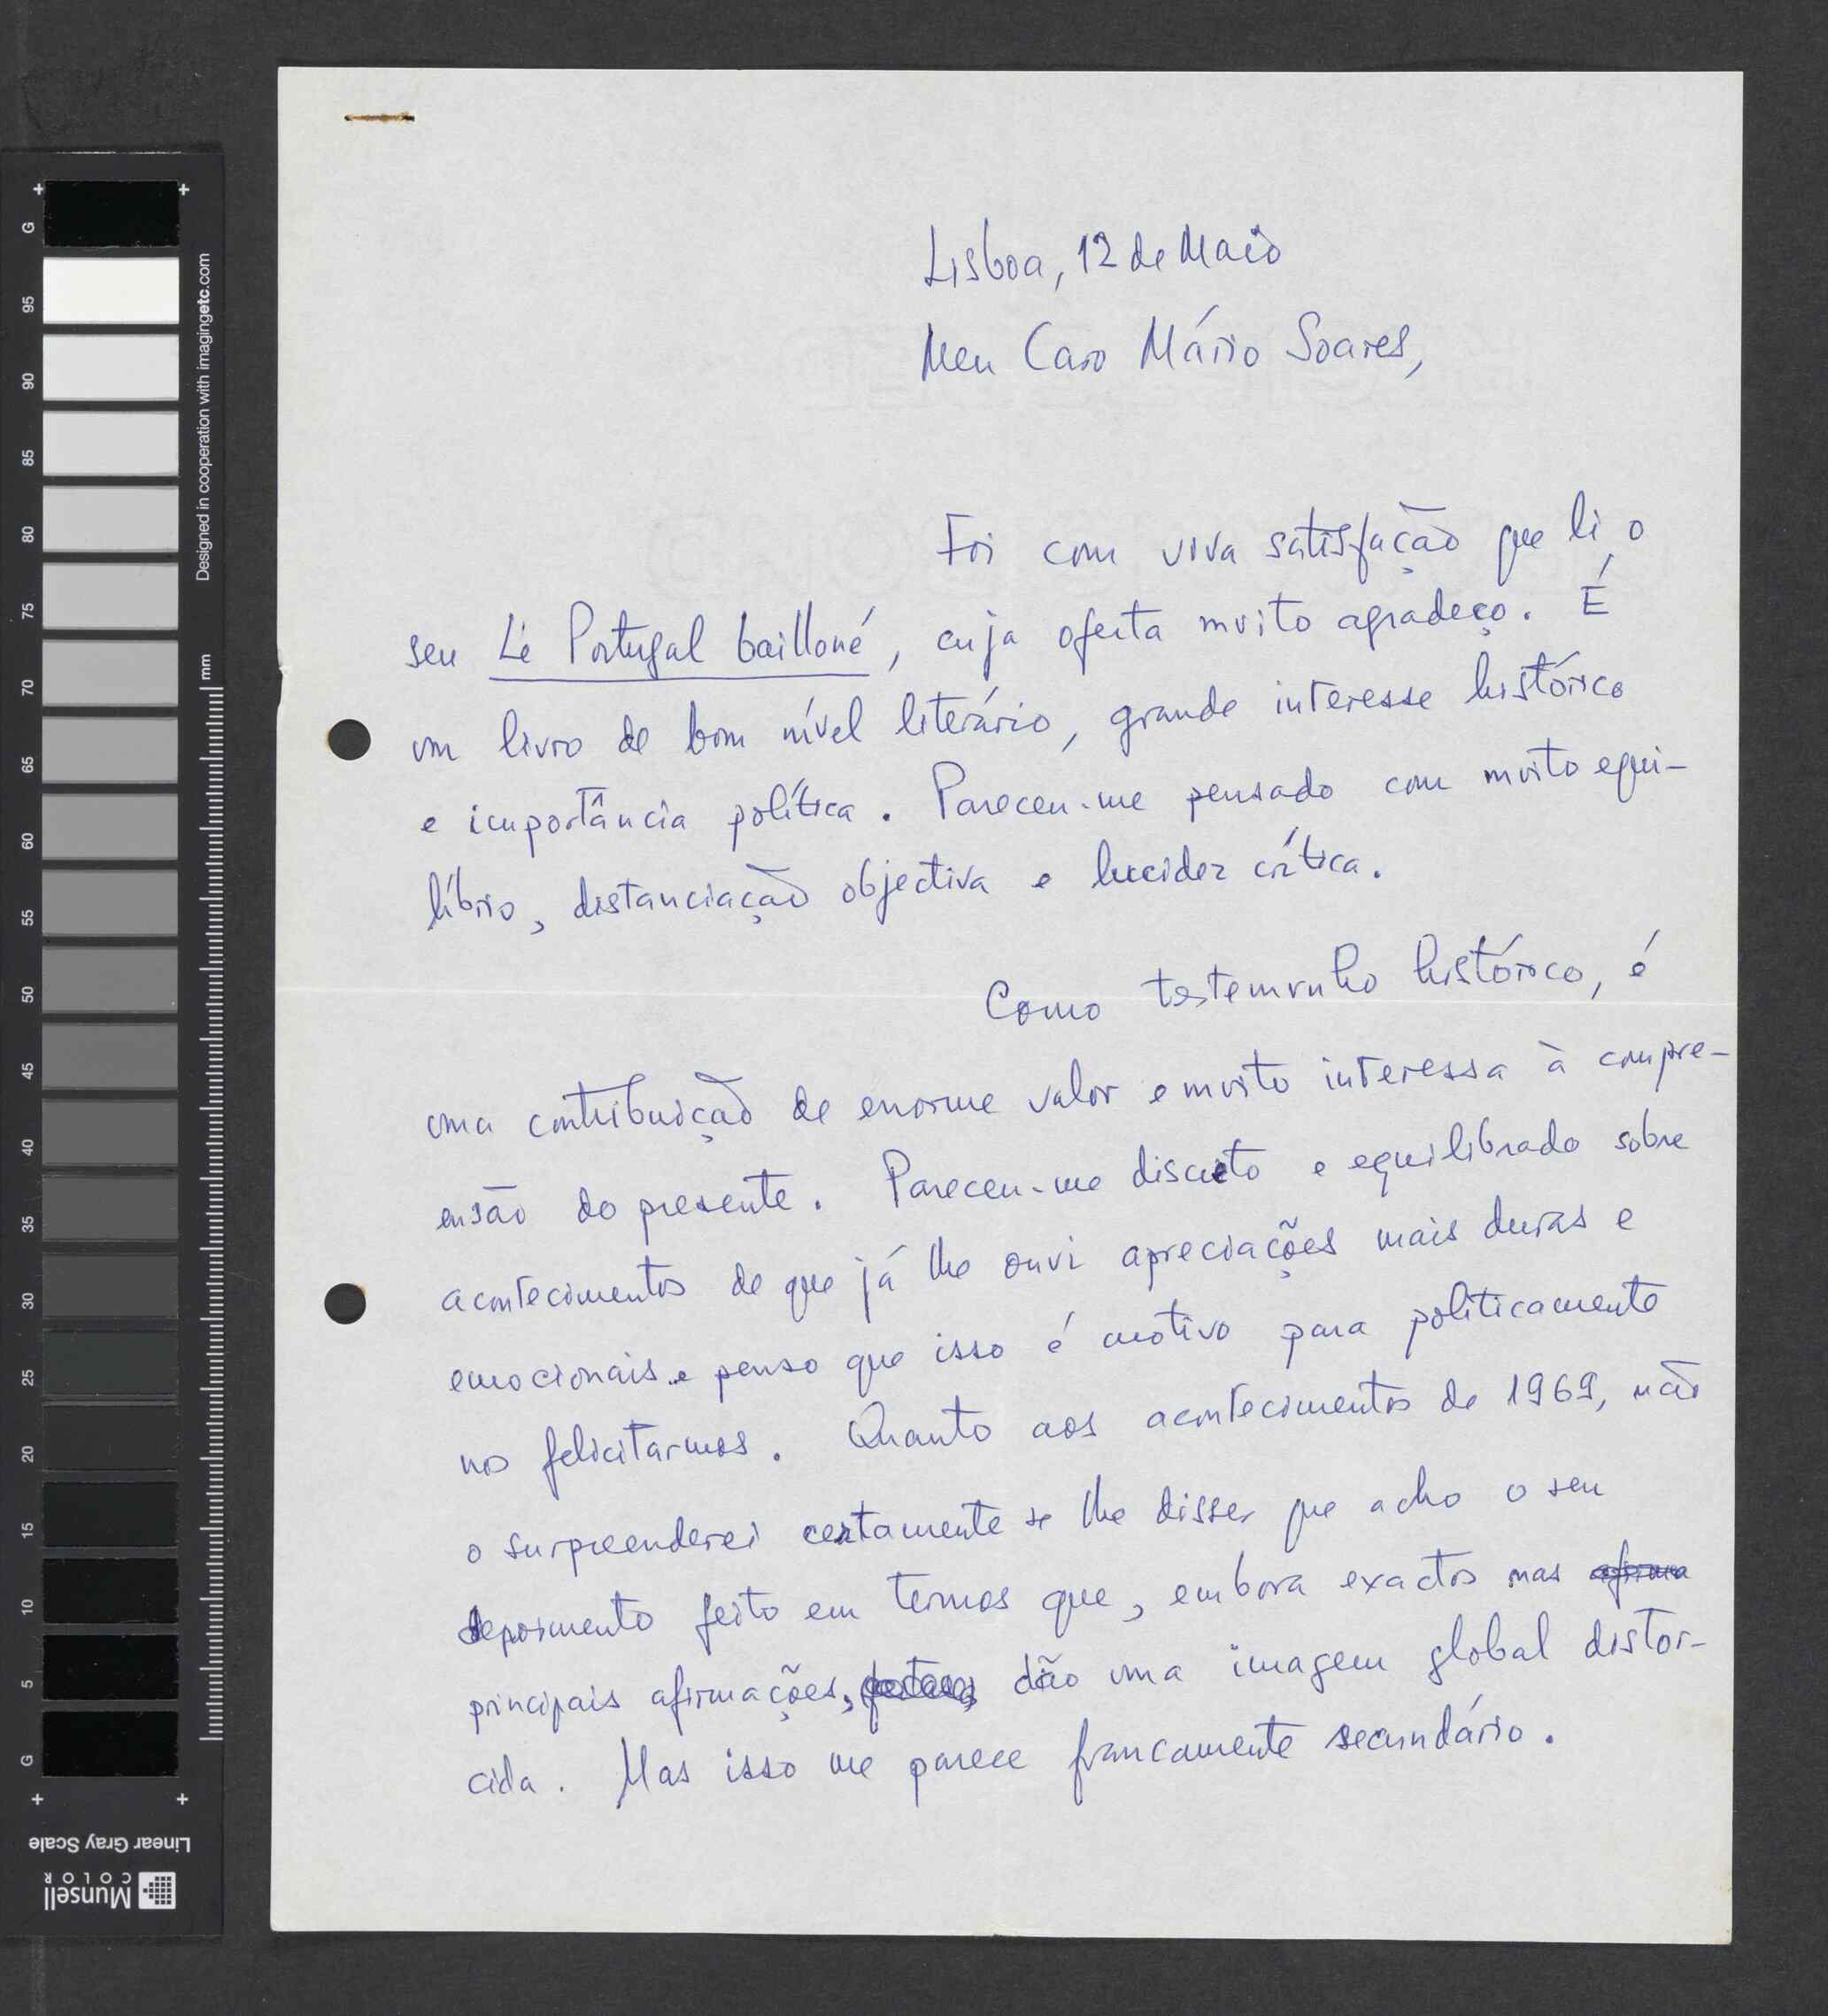 Lisboa, 12 de Maio
Meu Caro Mário Soares,
Foi com viva satisfação que li o
seu Le Portugal bailloné, cuja oferta muito agradeço. É
um livro de bom nível literário, grande interesse histórico
e importância política. Pareceu-me pensado com muito equi-
líbrio, distanciação objectiva e lucidez crítica.
Como testemunho histórico, é
uma contribuição de enorme valor e muito interessa à compre-
ensão do presente. Pareceu-me discreto e equilibrado sobre
acontecimentos de que já lhe ouvi apreciações mais duras e
emocionais e penso que isso é motivo para politicamente
nos felicitarmos. Quanto aos acontecimentos de 1969, não
o surpreenderei certamente se lhe disser que acho o seu
depoimento feito em termos que, embora exactos nas
principais afirmações, dão uma imagem global distor-
cida. Mas isso me parece francamente secundário.
+ +
G 95 90 85 80 75 70 65 60 55 50 45 40 35 30 25 20 15 10 5 G
Designed in cooperation with imagingetc.com
mm
+ +
Linear Gray Scale
Munsell
COLOR